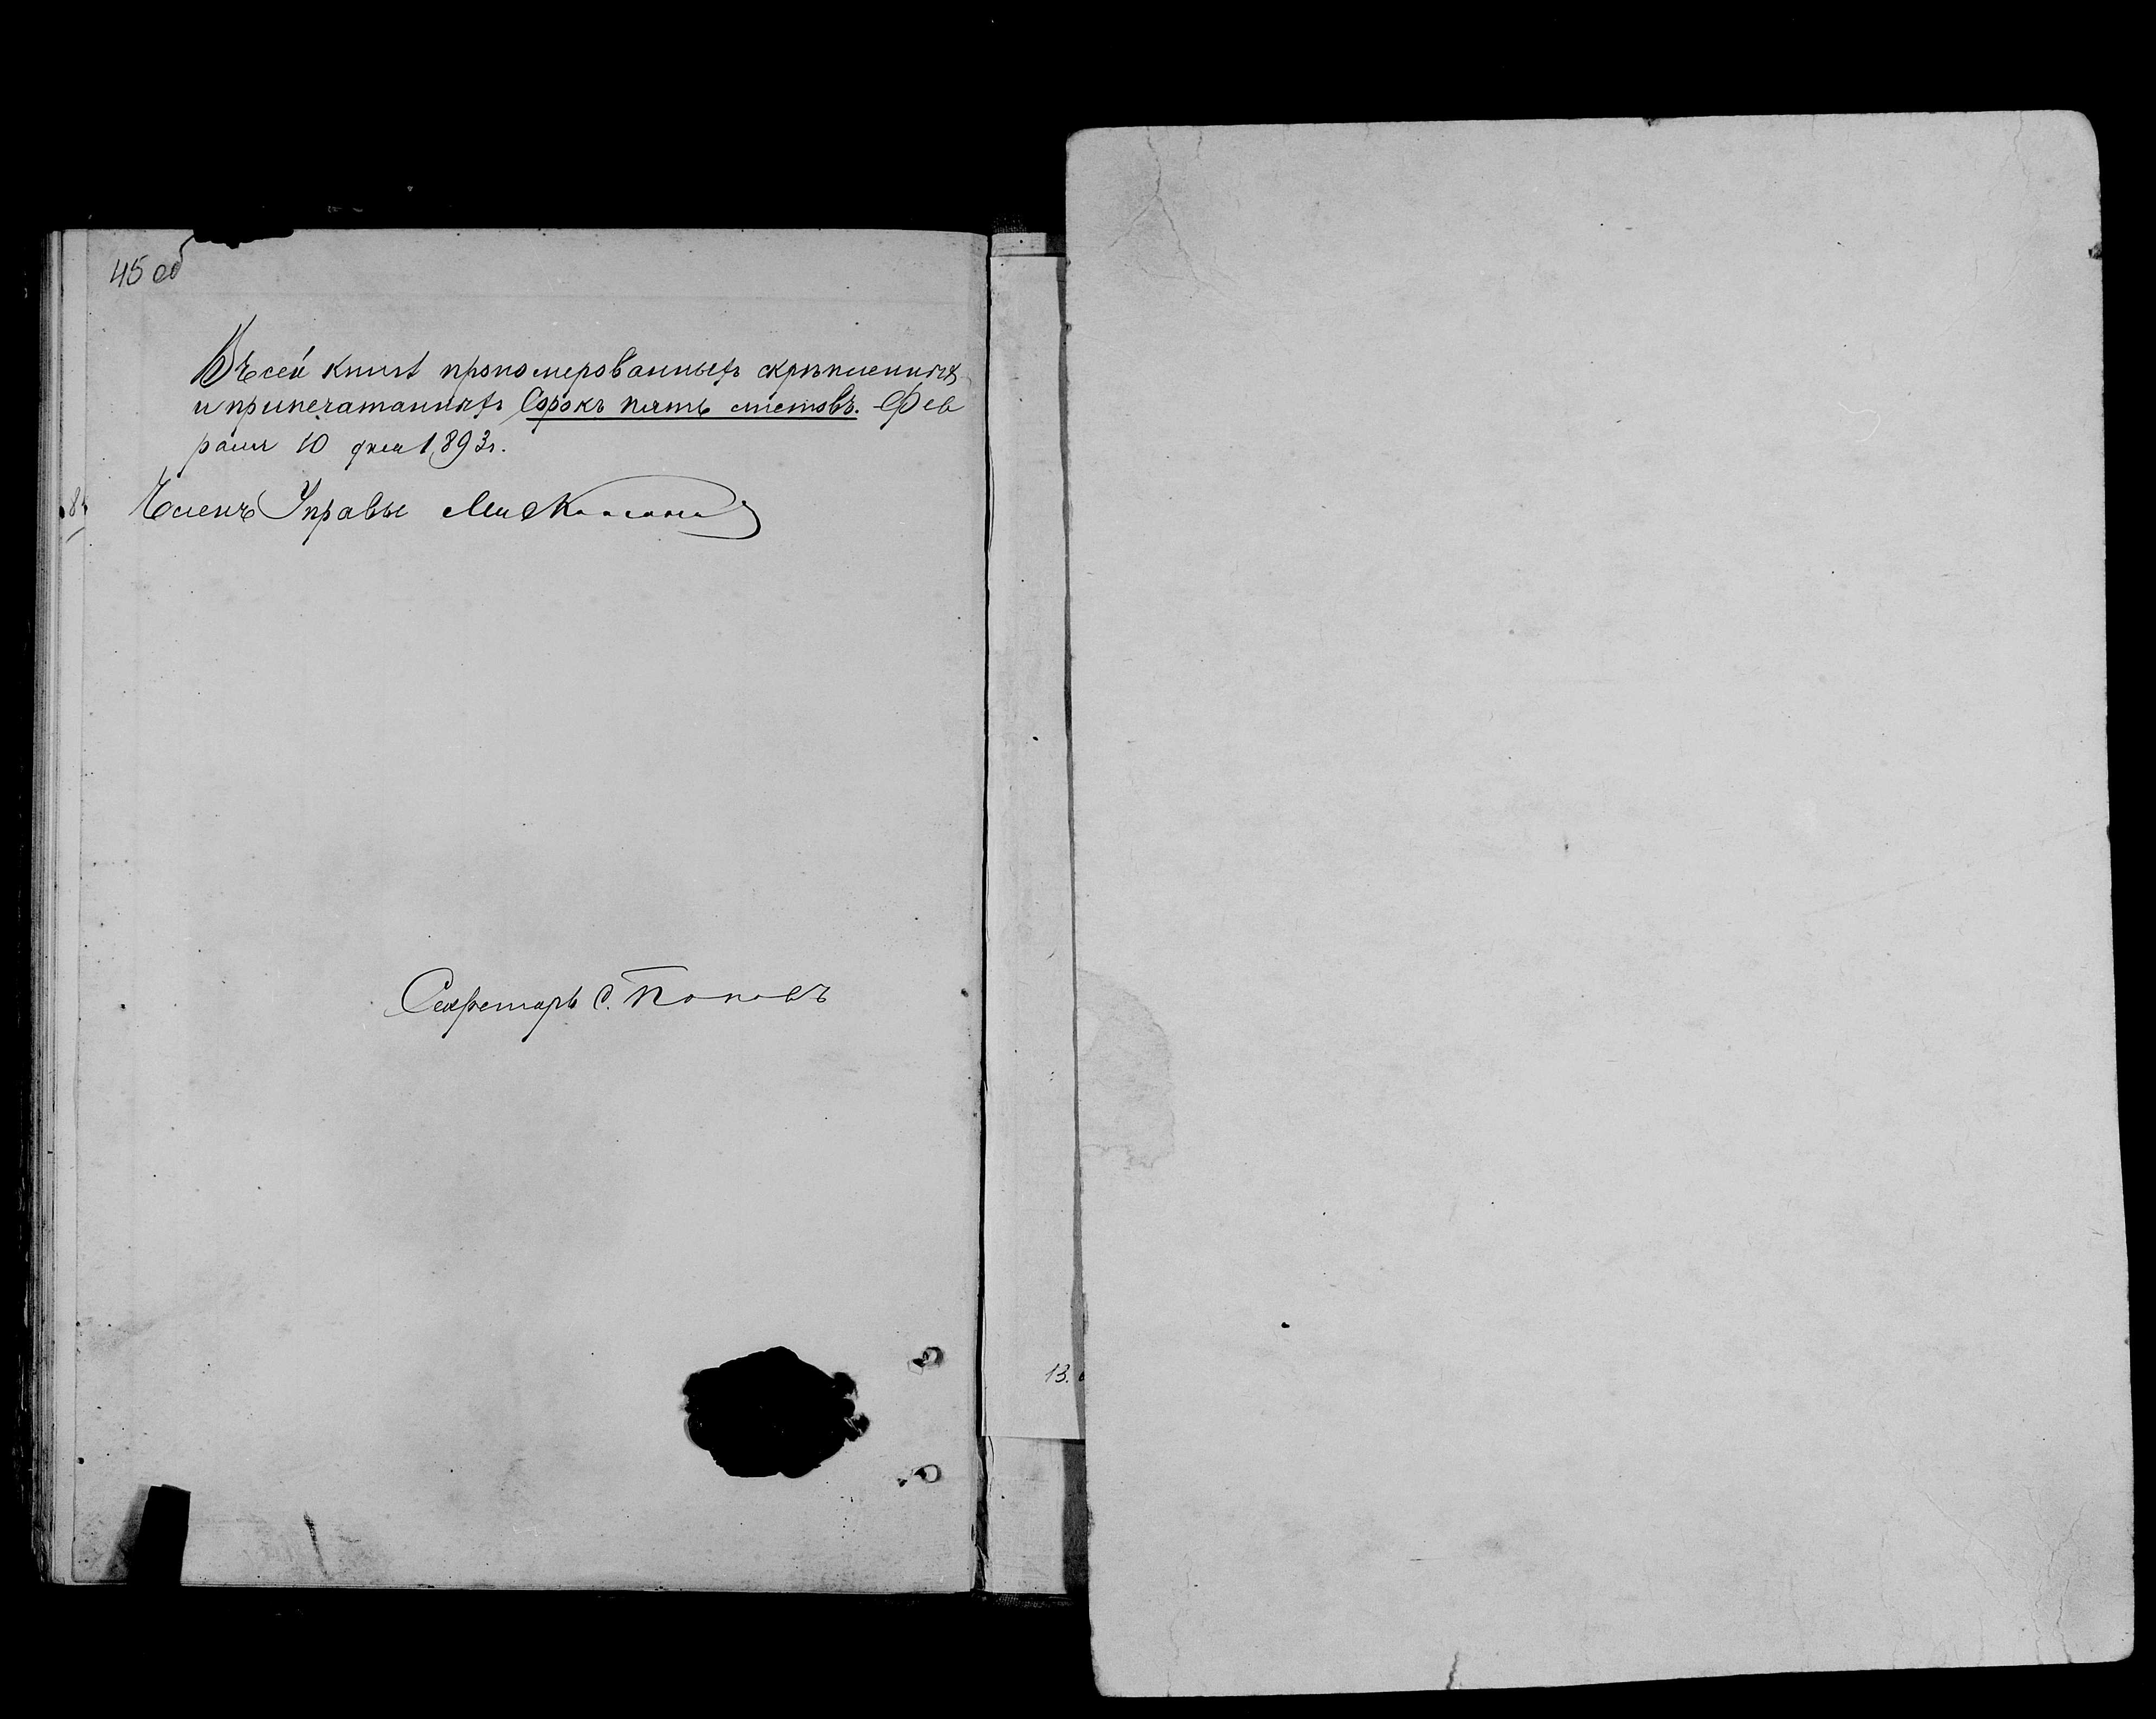 45 об
Въ сей книгѣ прономерованныхъ скрѣпленныхъ
и припечатанныхъ Сорокъ пять листовъ. Фев
раля 10 дня 1893 г.
Членъ Управы
Секретарь С. Поповъ
13.